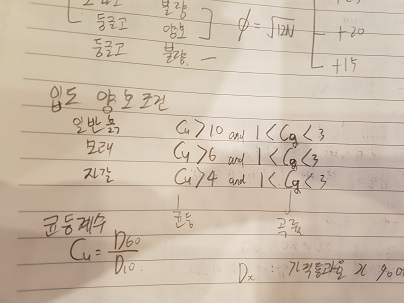 불량 +25
둥글고 양호 ϕ=√12N +20
둥글고 불량 +15
입도 양호조건
일반흙 Cu>10 and 1<Cg<3
모래 Cu>6 and 1<Cg<3
자갈 Cu>4 and 1<Cg<3
균등 곡률
균등계수
Cu = D60
D10
Dx : 가적통과율 x %